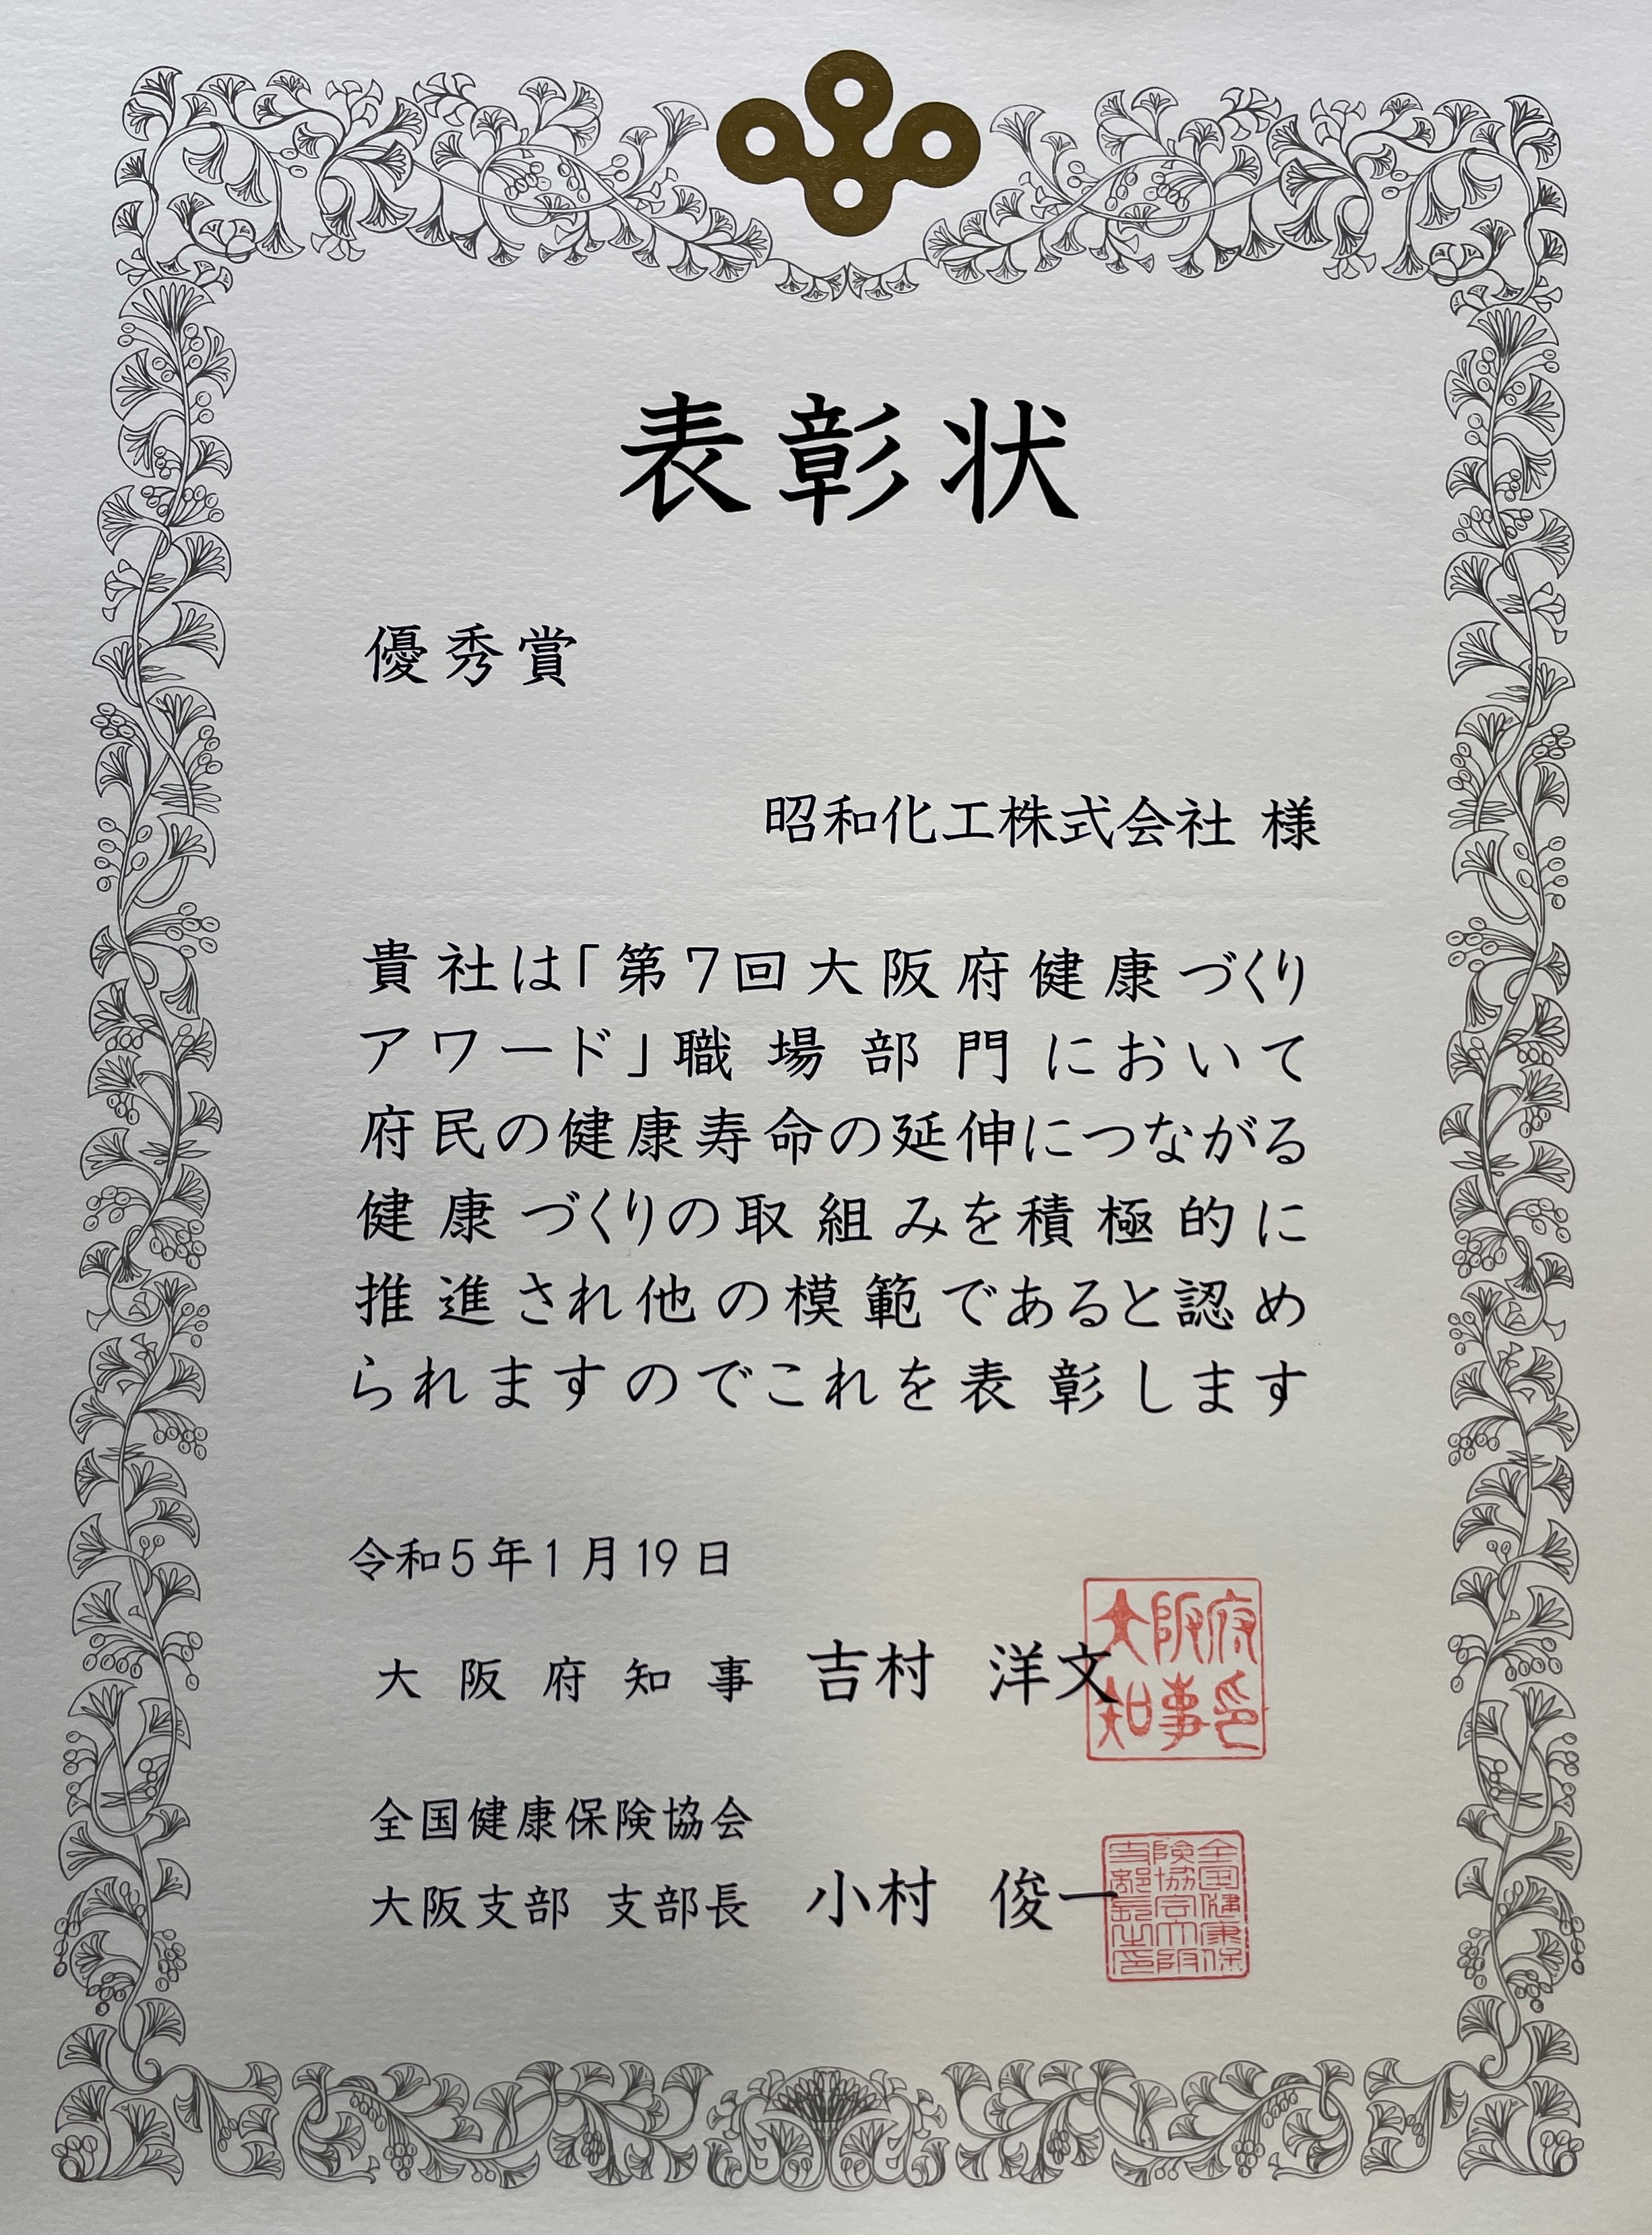 表彰状
優秀賞
昭和化工株式会社 様
貴社は「第7回大阪府健康づくり
アワード」職場部門において
府民の健康寿命の延伸につながる
健康づくりの取組みを積極的に
推進され他の模範であると認め
られますのでこれを表彰します
令和5年1月19日
大阪府知事 吉村 洋文
大阪府
知事印
全国健康保険協会
大阪支部 支部長 小村 俊一
全国健康保
険協会大阪
支部長之印